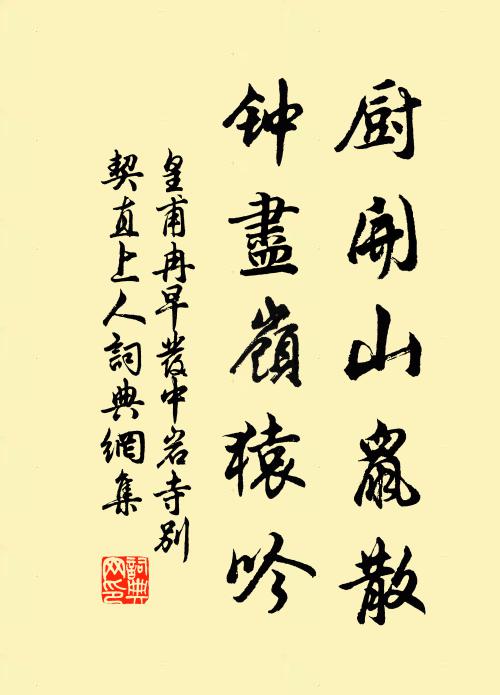 厨開山鼠散
钟盡嶺猿吟
皇甫冉早發中岩寺别
契直上人詞典網集
詞典网印